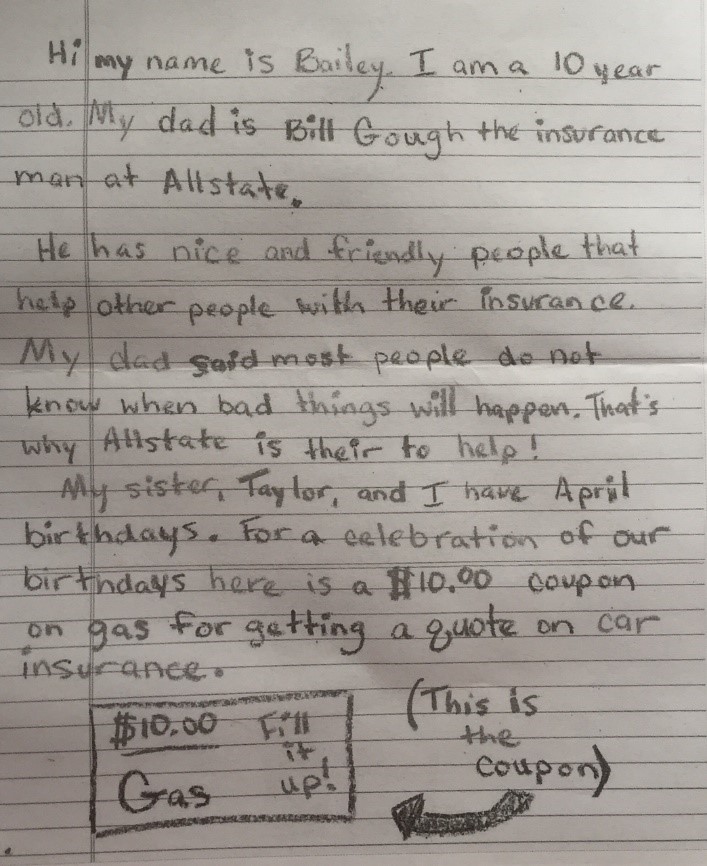 Hi my name is Bailey. I am a 10 year
old. My dad is Bill Gough the insurance
man at Allstate.
He has nice and friendly people that
help other people with their insurance.
My dad said most people do not
know when bad things will happen. That's
why Allstate is their to help!
My sister, Taylor, and I have April
birthdays. For a celebration of our
birthdays here is a $10.00 coupon
on gas for getting a quote on car
insurance.
$10.00 Fill
it
Gas up!
(This is
the
coupon)